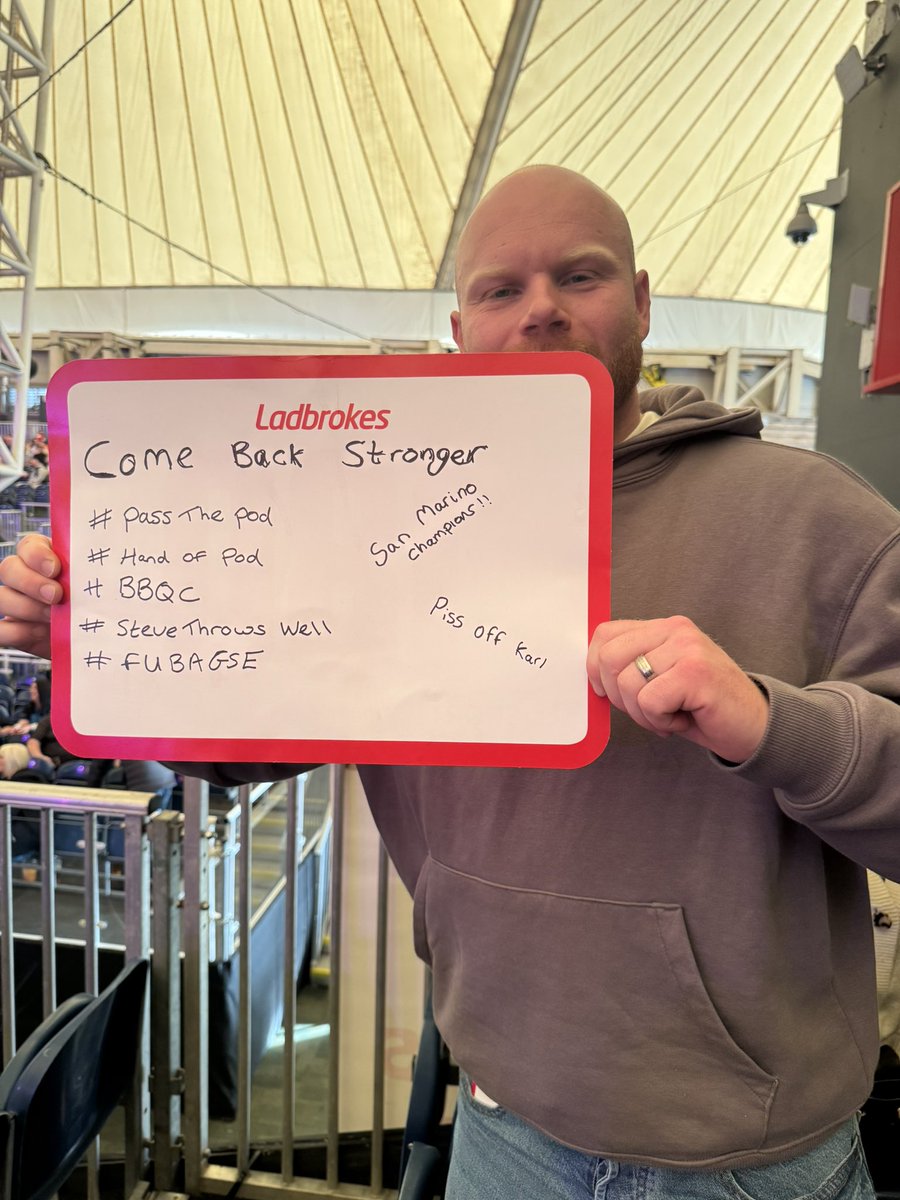 Ladbrokes
Come Back Stronger
# Pass The Pod
# Hand of Pod
# BBQC
# Steve Throws Well
# FUBAGSE
San Marino
Champions!!
Piss off Karl